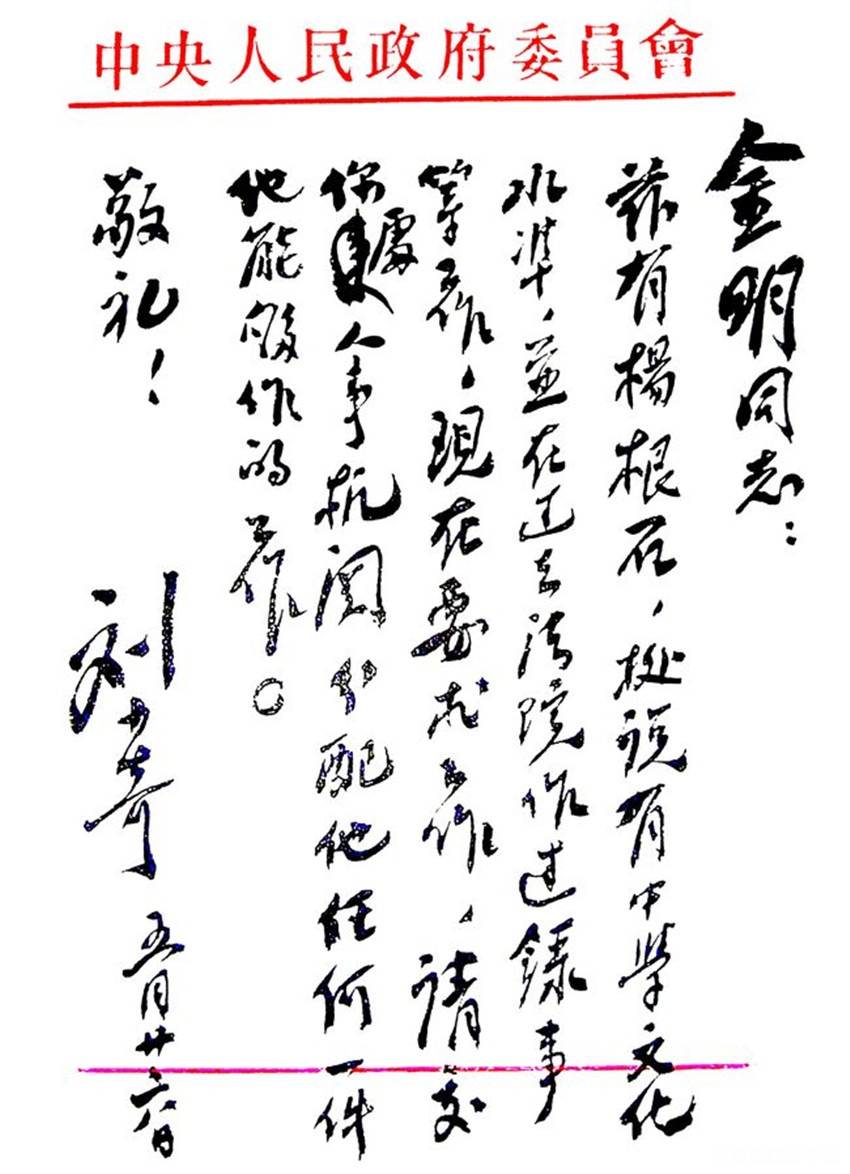 中央人民政府委員會
金明同志：
茲有楊根石，據說有中學文化
水準，並在过去法院作过錄事
等工作，現在要求工作，請交
你處人事机関分配他任何一件
他能够作的工作。
敬礼！
刘少奇 五月廿六日